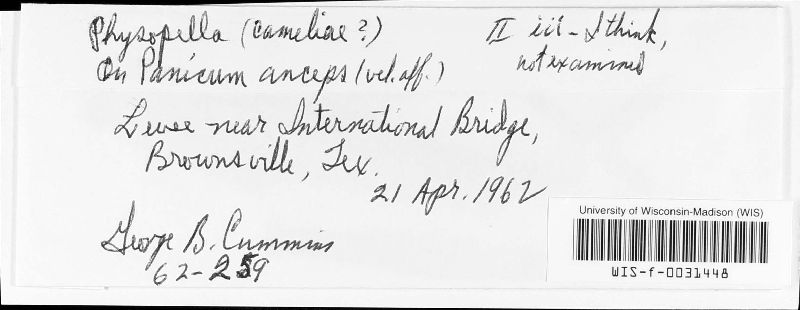 Physopella (cameliae ?)
II iii - I think,
not examined
On Panicum anceps (vel. aff.)
Levee near International Bridge,
Brownsville, Tex.
21 Apr. 1962
George B. Cummins
62-259
University of Wisconsin-Madison (WIS)
WIS-f-0031448